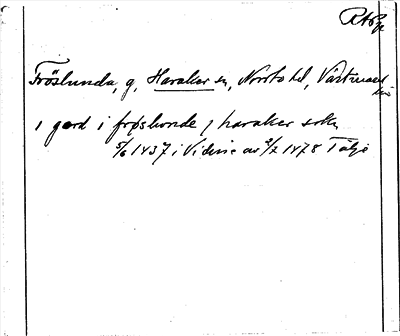 RAp
Fröslunda, g, Haraker sn, Norrbo hd, Västmanl
län
1 gard i frøslunde j haraker sokn
5/6 1437 i Vidisse av 2/2 1478 Tälje